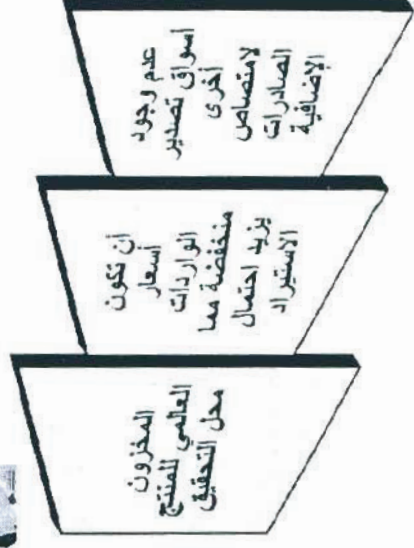 المخزون
العالمي للمنتج
محل التحقيق
أن تكون
أسعار
الواردات
منخفضة مما
يزيد احتمال
الاستيراد
عدم وجود
اسواق تصدير
أخرى
لامتصاص
الصادرات
الإضافية